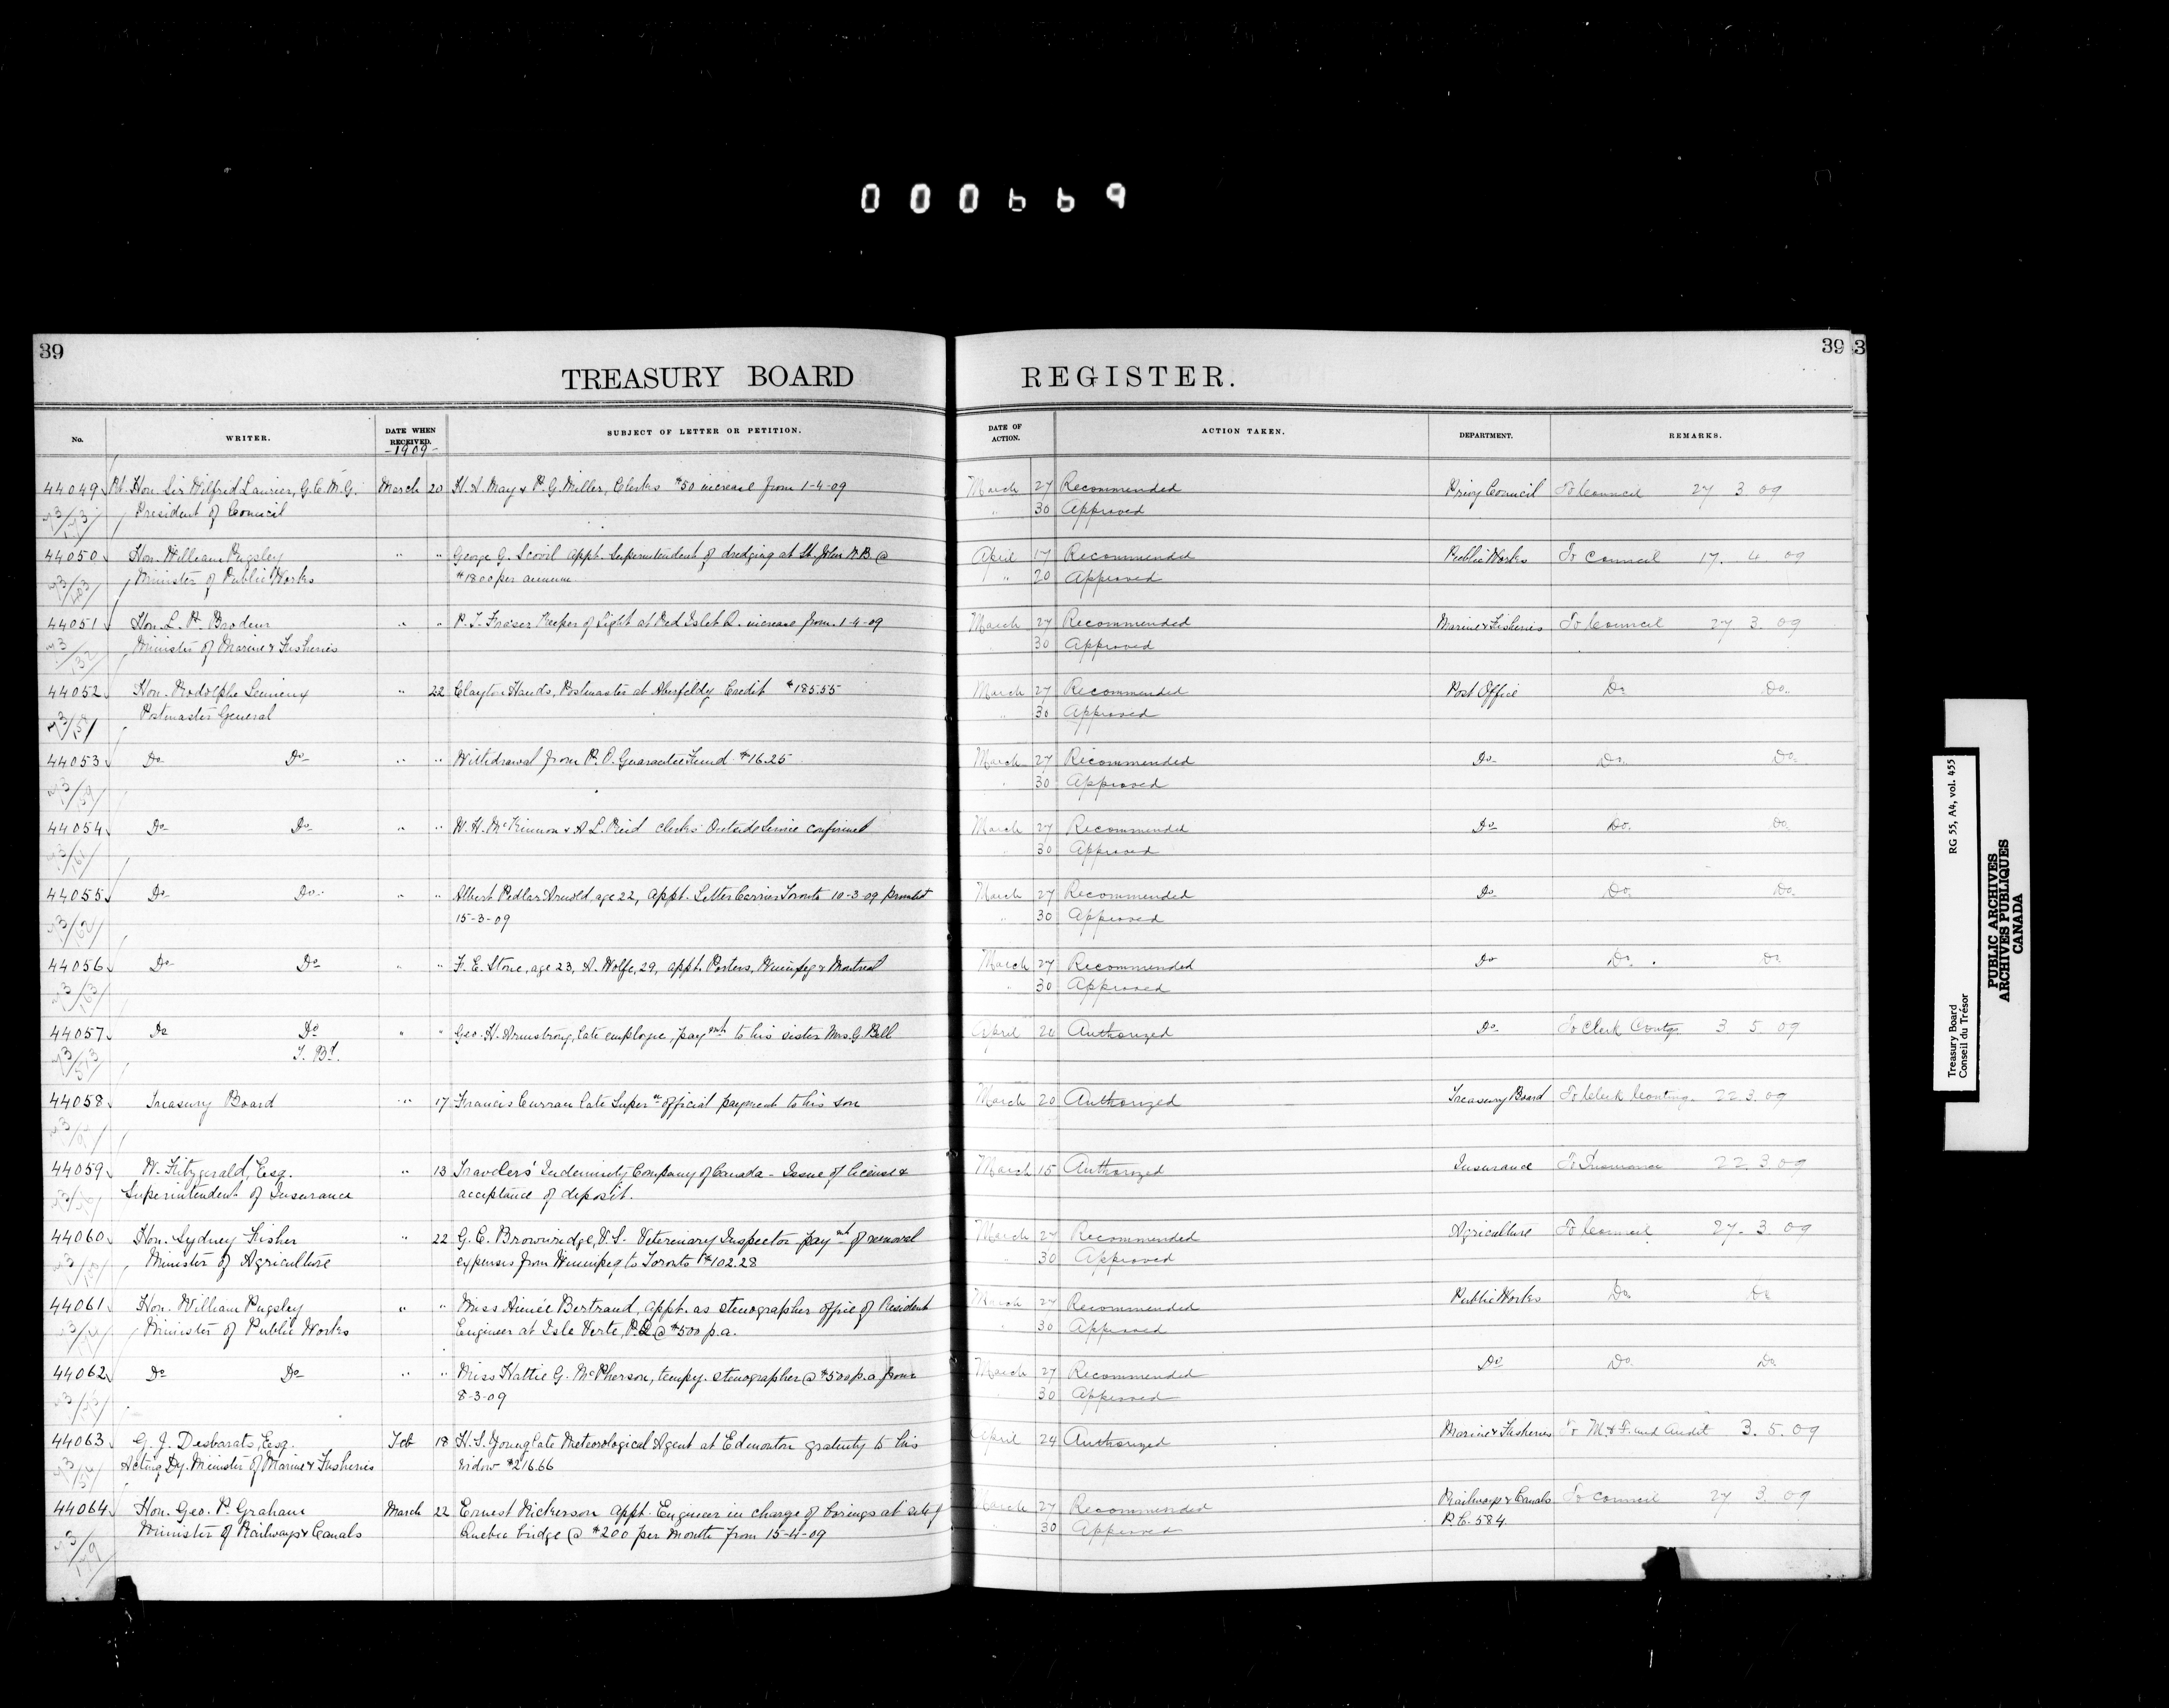 000669
39
39
3
TREASURY BOARD REGISTER.
No. WRITER. DATE WHEN RECEIVED. SUBJECT OF LETTER OR PETITION. DATE OF ACTION. ACTION TAKEN. DEPARTMENT. REMARKS.
-1909-
44049 Rt. Hon. Sir Wilfred Laurier, G.C.M.G. March 20 H. A. May & P. G. Miller, Clerks $50 increase from 1-4-09 March 27 Recommended Privy Council To Council 27 3 09
President of Council 30 Approved
44050 Hon. William Pugsley " " George G. Scovil appt. Superintendent of dredging at St. John N.B. @ April 17 Recommended Public Works To Council 17. 4. 09
Minister of Public Works $1800 per annum " 20 Approved
44051 Hon. L. P. Brodeur " " P. T. Fraser Keeper of light at Red Islet Q. increase from 1-4-09 March 27 Recommended Marine & Fisheries To Council 27 3. 09
Minister of Marine & Fisheries 30 Approved
44052 Hon. Rodolphe Lemieux " 22 Clayton Hands, Postmaster at Aberfeldy Credit $185.55 March 27 Recommended Post Office Do Do
Postmaster General 30 Approved
44053 Do Do " " Withdrawal from P. O. Guarantee Fund $16.25 March 27 Recommended Do Do Do
30 Approved
44054 Do Do " " W. H. McKinnon & A. L. Reid clerks Outside Service confirmed March 27 Recommended Do Do Do
30 Approved
44055 Do Do " " Albert Pedlar Arnold, age 22, appt. Letter Carrier Toronto 10-3-09 March 27 Recommended Do Do Do
15-3-09 30 Approved
44056 Do Do " " F. E. Stone, age 23, A. Wolfe, 29, appt. Porters, Winnipeg & Montreal March 27 Recommended Do Do Do
30 Approved
44057 Do Do " " Geo. H. Armstrong, late employe, paymt to his sister Mrs. G. Bell April 24 Authorized Do To Clerk Contgs. 3. 5. 09
T. Bd.
44058 Treasury Board " 17 Francis Curran late Supern official payment to his son March 20 Authorized Treasury Board To Clerk Conting. 22.3.09
44059 W. Fitzgerald, Esq. " 13 Travelers' Indemnity Company of Canada - Issue of license & March 15 Authorized Insurance To Insurance 22.3.09
Superintendent of Insurance acceptance of deposit.
44060 Hon. Sydney Fisher " 22 G. C. Brownridge, V.S. Veterinary Inspector paymt of removal March 27 Recommended Agriculture To Council 27. 3. 09
Minister of Agriculture expenses from Winnipeg to Toronto $102.28 30 Approved
44061 Hon. William Pugsley " " Miss Aimée Bertrand, appt. as stenographer office of Resident March 27 Recommended Public Works Do Do
Minister of Public Works Engineer at Isle Verte, P.Q. @ $500 p.a. 30 Approved
44062 Do Do " " Miss Hattie G. McPherson, tempy. stenographer @ $500 p.a from March 27 Recommended Do Do Do
8-3-09 30 Approved
44063 G. J. Desbarats, Esq. Feb 18 H. S. Young late Meteorological Agent at Edmonton gratuity to his April 24 Authorized Marine & Fisheries To M. & F. and Audit 3. 5. 09
Acting Dy. Minister of Marine & Fisheries widow $216.66
44064 Hon. Geo. P. Graham March 22 Ernest Nickerson appt. Engineer in charge of borings at site of March 27 Recommended Railways & Canals To Council 27 3. 09
Minister of Railways & Canals Quebec bridge @ $200 per month from 15-4-09 30 Approved P.C. 584.
Treasury Board RG 55, A4, vol. 455
Conseil du Trésor
PUBLIC ARCHIVES
ARCHIVES PUBLIQUES
CANADA